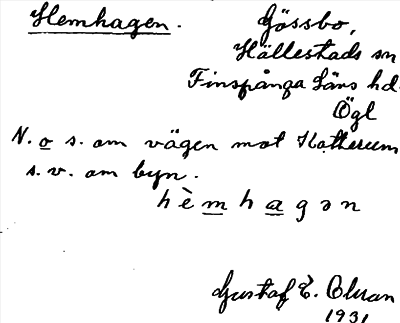 Hemhagen. Gössbo,
Hällestads sn
Finspånga läns hd.
Ögl
N. o s. om vägen mot Katterum
s.v. om byn.
hèmhagən
Gustaf E.
1931